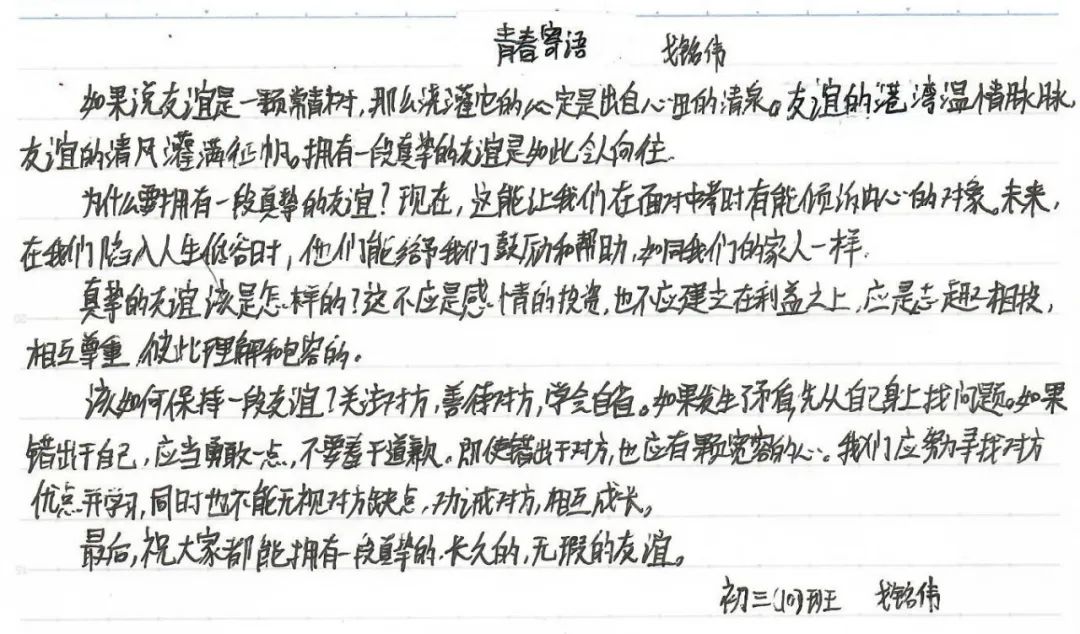 青春寄语 戈铭伟
如果说友谊是一颗常青树,那么浇灌它的必定是出自心田的清泉。友谊的港湾温情脉脉,
友谊的清风灌满征帆。拥有一段真挚的友谊是如此令人向往.
为什么要拥有一段真挚的友谊?现在,这能让我们在面对中考时有能倾诉内心的对象。未来,
在我们陷入人生低谷时,他们能给予我们鼓励和帮助,如同我们的家人一样.
真挚的友谊该是怎样的?这不应是感情的投资,也不应建立在利益之上,应是志趣相投,
相互尊重,彼此理解和包容的。
该如何保持一段友谊?关注对方,善待对方,学会自省。如果发生了矛盾,先从自己身上找问题。如果
错出于自己,应当勇敢一点,不要羞于道歉。即使错出于对方,也应有颗宽容的心。我们应努力寻找对方
优点并学习,同时也不能无视对方缺点,劝诫对方,相互成长。
最后,祝大家都能拥有一段真挚的.长久的,无瑕的友谊。
初三(10)班 戈铭伟